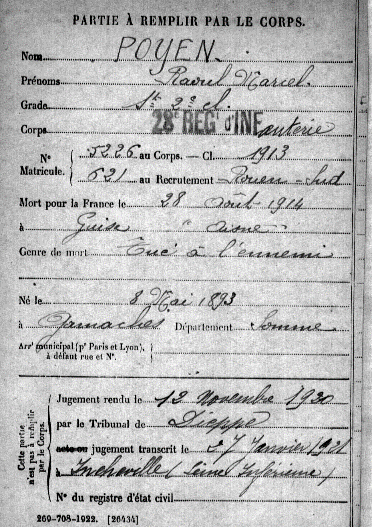 PARTIE À REMPLIR PAR LE CORPS.
Nom POYEN
Prénoms Raoul Marcel
Grade St 2e cl.
Corps 28e REG d'INFanterie
N° Matricule. { 5226 au Corps. — Cl. 1913
621 au Recrutement Rouen-Sud
Mort pour la France le 28 Août 1914
à Guise " Aisne "
Genre de mort Tué à l'ennemi
Né le 8 Mai 1893
à Gamaches Département Somme
Arrt municipal (pr Paris et Lyon), à défaut rue et N°.
Cette partie n'est pas à remplir par le Corps.
Jugement rendu le 12 Novembre 1920
par le Tribunal de Dieppe
acte ou jugement transcrit le 27 Janvier 1921
à Incheville (Seine Inférieure)
N° du registre d'état civil
269-708-1922. [26434]